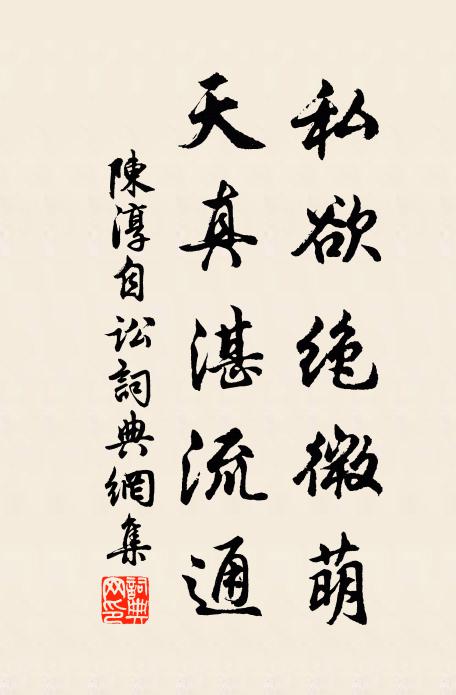 私欲绝微萌
天真湛流通
陳淳自訟詞典網集
詞典网印